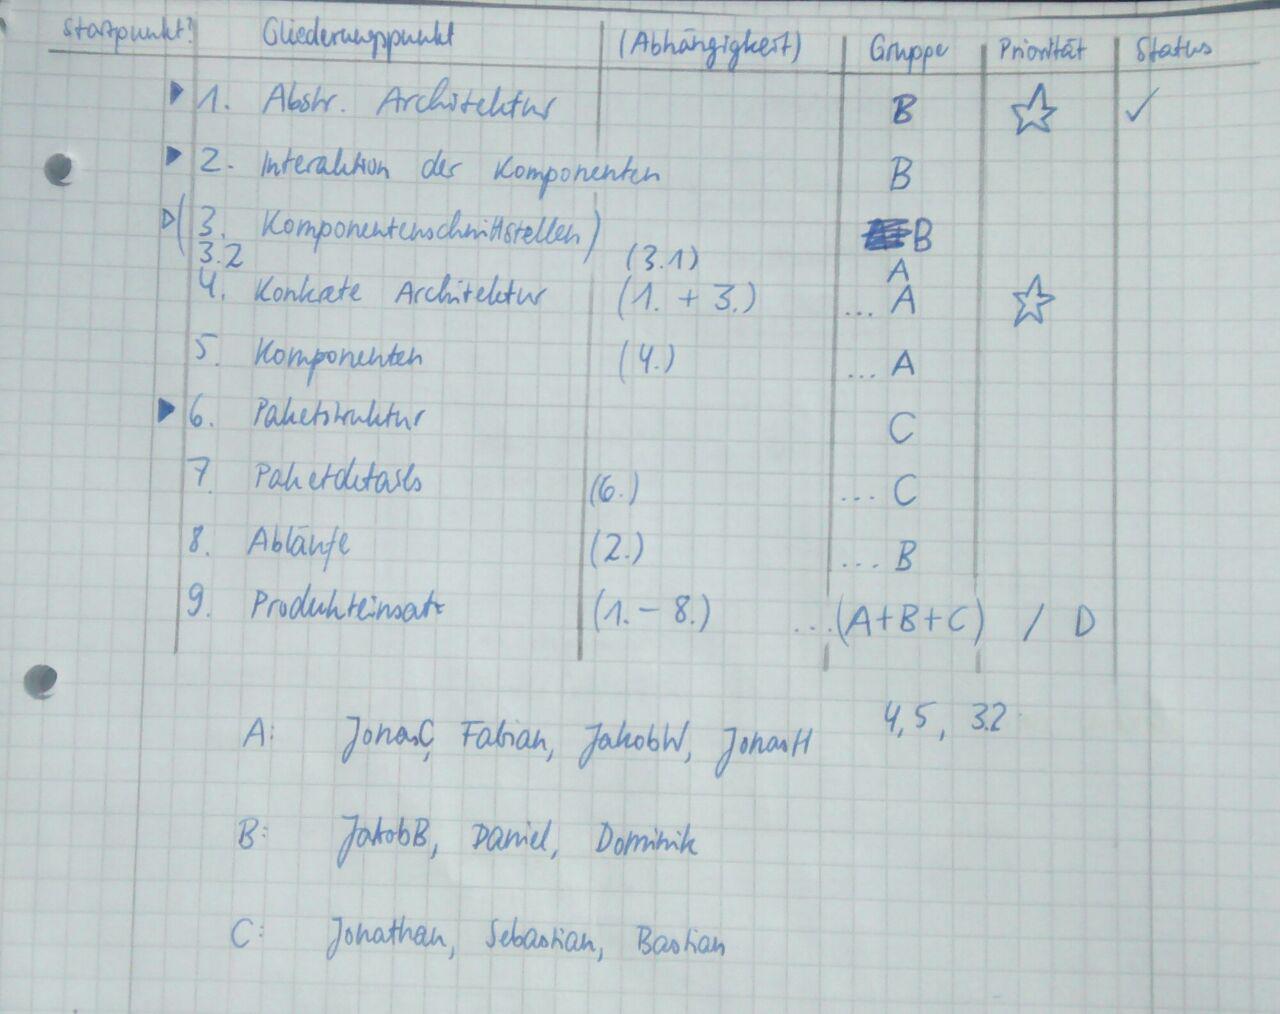 Startpunkt? Gliederungspunkt (Abhängigkeit) Gruppe Priorität Status
1. Abstr. Architektur B ☆ ✓
2. Interaktion der Komponenten B
(3. Komponentenschnittstellen) B
3.2 (3.1) A
4. Konkrete Architektur (1. + 3.) ... A ☆
5. Komponenten (4.) ... A
6. Paketstruktur C
7. Paketdetails (6.) ... C
8. Abläufe (2.) ... B
9. Produkteinsatz (1. – 8.) ... (A+B+C) / D
A: JonasC, Fabian, JakobW, JonasH 4, 5, 3.2
B: JakobB, Daniel, Dominik
C: Jonathan, Sebastian, Bastian